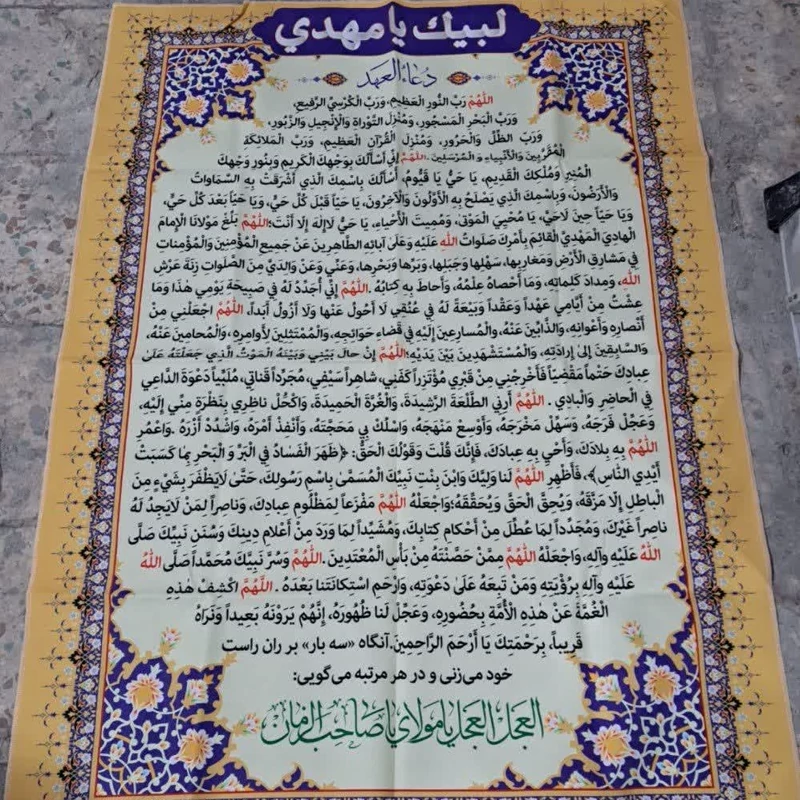 لبيك يا مهدي
دُعاءُ العهد
اَللّٰهُمَّ رَبَّ النُّورِ الْعَظيمِ، وَرَبَّ الْكُرْسِيِّ الرَّفيعِ،
وَرَبَّ الْبَحْرِ الْمَسْجُورِ، وَمُنْزِلَ التَّوْراةِ وَالْإِنْجيلِ وَالزَّبُورِ،
وَرَبَّ الظِّلِّ وَالْحَرُورِ، وَمُنْزِلَ الْقُرْآنِ الْعَظيمِ، وَرَبَّ الْمَلائِكَةِ
الْمُقَرَّبينَ وَالْأَنْبِياءِ وَ الْمُرْسَلينَ. اَللّٰهُمَّ إِنِّي أَسْأَلُكَ بِوَجْهِكَ الْكَريمِ وَبِنُورِ وَجْهِكَ
الْمُنيرِ وَمُلْكِكَ الْقَديمِ، يَا حَيُّ يَا قَيُّومُ، أَسْأَلُكَ بِاسْمِكَ الَّذي أَشْرَقَتْ بِهِ السَّماواتُ
وَالْأَرَضُونَ، وَبِاسْمِكَ الَّذي يَصْلَحُ بِهِ الْأَوَّلُونَ وَالْآخِرُونَ، يَا حَيّاً قَبْلَ كُلِّ حَيٍّ، وَيَا حَيّاً بَعْدَ كُلِّ حَيٍّ،
وَيَا حَيّاً حينَ لَاحَيَّ، يَا مُحْيِيَ الْمَوْتىٰ، وَمُميتَ الْأَحْياءِ، يَا حَيُّ لَاإِلٰهَ إِلّا أَنْتَ؛ اَللّٰهُمَّ بَلِّغْ مَوْلانَا الْإِمامَ
الْهادِيَ الْمَهْدِيَّ الْقائِمَ بِأَمْرِكَ صَلَواتُ اللّٰهِ عَلَيْهِ وَعَلىٰ آبائِهِ الطّاهِرينَ عَنْ جَميعِ الْمُؤْمِنينَ وَالْمُؤْمِناتِ
في مَشارِقِ الْأَرْضِ وَمَغارِبِها، سَهْلِها وَجَبَلِها، وَبَرِّها وَبَحْرِها، وَعَنّي وَعَنْ وَالِدَيَّ مِنَ الصَّلَواتِ زِنَةَ عَرْشِ
اللّٰهِ، وَمِدادَ كَلِماتِهِ، وَمَا أَحْصاهُ عِلْمُهُ، وَأَحاطَ بِهِ كِتابُهُ. اَللّٰهُمَّ إِنِّي أُجَدِّدُ لَهُ في صَبيحَةِ يَوْمي هٰذا وَمَا
عِشْتُ مِنْ أَيّامي عَهْداً وَعَقْداً وَبَيْعَةً لَهُ في عُنُقي لَا أَحُولُ عَنْها وَلَا أَزُولُ أَبَداً، اَللّٰهُمَّ اجْعَلْني مِنْ
أَنْصارِهِ وَأَعْوانِهِ، وَالذّابّينَ عَنْهُ، وَالْمُسارِعينَ إِلَيْهِ في قَضاءِ حَوائِجِهِ، وَالْمُمْتَثِلينَ لِأَوامِرِهِ، وَالْمُحامينَ عَنْهُ،
وَالسّابِقينَ إِلىٰ إِرادَتِهِ، وَالْمُسْتَشْهَدينَ بَيْنَ يَدَيْهِ؛ اَللّٰهُمَّ إِنْ حالَ بَيْني وَبَيْنَهُ الْمَوْتُ الَّذي جَعَلْتَهُ عَلىٰ
عِبادِكَ حَتْماً مَقْضِيّاً فَأَخْرِجْني مِنْ قَبْري مُؤْتَزِراً كَفَني، شاهِراً سَيْفي، مُجَرِّداً قَناتي، مُلَبِّياً دَعْوَةَ الدّاعي
فِي الْحاضِرِ وَالْبادي. اَللّٰهُمَّ أَرِنِي الطَّلْعَةَ الرَّشيدَةَ، وَالْغُرَّةَ الْحَميدَةَ، وَاكْحُلْ ناظِري بِنَظْرَةٍ مِنّي إِلَيْهِ،
وَعَجِّلْ فَرَجَهُ، وَسَهِّلْ مَخْرَجَهُ، وَأَوْسِعْ مَنْهَجَهُ، وَاسْلُكْ بي مَحَجَّتَهُ، وَأَنْفِذْ أَمْرَهُ، وَاشْدُدْ أَزْرَهُ. وَاعْمُرِ
اَللّٰهُمَّ بِهِ بِلادَكَ، وَأَحْيِ بِهِ عِبادَكَ، فَإِنَّكَ قُلْتَ وَقَوْلُكَ الْحَقُّ: ﴿ظَهَرَ الْفَسادُ فِي الْبَرِّ وَ الْبَحْرِ بِمَا كَسَبَتْ
أَيْدِي النّاسِ﴾، فَأَظْهِرِ اللّٰهُمَّ لَنا وَلِيَّكَ وَابْنَ بِنْتِ نَبِيِّكَ الْمُسَمّىٰ بِاسْمِ رَسُولِكَ، حَتّىٰ لَايَظْفَرَ بِشَيْءٍ مِنَ
الْباطِلِ إِلّا مَزَّقَهُ، وَيُحِقَّ الْحَقَّ وَيُحَقِّقَهُ؛ وَاجْعَلْهُ اللّٰهُمَّ مَفْزَعاً لِمَظْلُومِ عِبادِكَ، وَناصِراً لِمَنْ لَايَجِدُ لَهُ
ناصِراً غَيْرَكَ، وَمُجَدِّداً لِمَا عُطِّلَ مِنْ أَحْكامِ كِتابِكَ، وَمُشَيِّداً لِمَا وَرَدَ مِنْ أَعْلامِ دينِكَ وَسُنَنِ نَبِيِّكَ صَلَّى
اللّٰهُ عَلَيْهِ وَآلِهِ، وَاجْعَلْهُ اللّٰهُمَّ مِمَّنْ حَصَّنْتَهُ مِنْ بَأْسِ الْمُعْتَدينَ. اَللّٰهُمَّ وَسُرَّ نَبِيَّكَ مُحَمَّداً صَلَّى اللّٰهُ
عَلَيْهِ وَآلِهِ بِرُؤْيَتِهِ وَمَنْ تَبِعَهُ عَلىٰ دَعْوَتِهِ، وَارْحَمِ اسْتِكانَتَنا بَعْدَهُ. اَللّٰهُمَّ اكْشِفْ هٰذِهِ
الْغُمَّةَ عَنْ هٰذِهِ الْأُمَّةِ بِحُضُورِهِ، وَعَجِّلْ لَنا ظُهُورَهُ، إِنَّهُمْ يَرَوْنَهُ بَعيداً وَنَراهُ
قَريباً، بِرَحْمَتِكَ يَا أَرْحَمَ الرّاحِمينَ. آنگاه «سه بار» بر ران راست
خود می‌زنی و در هر مرتبه می‌گویی:
العجل العجل يا مولاي يا صاحب الزمان